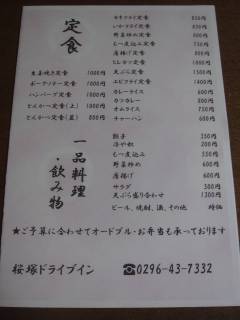 定食
生姜焼き定食 1000円
ポークソテー定食 1000円
ハンバーグ定食 1000円
とんかつ定食(上) 1000円
とんかつ定食(並) 800円
カキフライ定食 850円
いかフライ定食 850円
野菜炒め定食 800円
もつ煮込み定食 750円
唐揚げ定食 800円
ヒレカツ定食 1000円
天ぷら定食 1500円
エビフライ定食 1400円
カレーライス 600円
カツカレー 800円
オムライス 750円
チャーハン 600円
一品料理・飲み物
餃子 350円
冷や奴 200円
もつ煮込み 550円
野菜炒め 600円
唐揚げ 600円
サラダ 300円
天ぷら盛り合わせ 1300円
ビール、焼酎、酒、その他 時価
★ご予算に合わせてオードブル・お弁当も承っております
桜塚ドライブイン ☎0296-43-7332